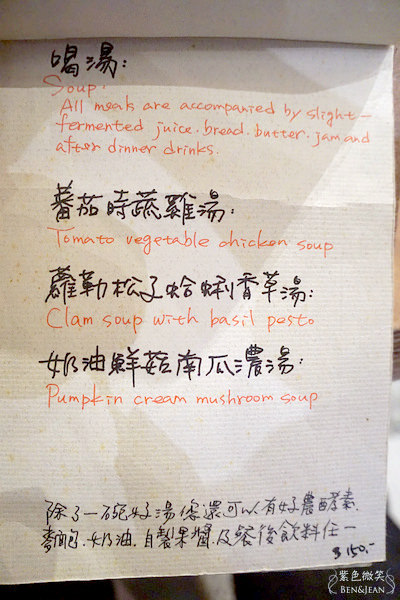 喝湯:
Soup:
All meals are accompanied by slight-
fermented juice. bread. butter. jam and
after dinner drinks.
蕃茄時蔬雞湯:
Tomato vegetable chicken soup
蘿勒松子蛤蜊香草湯:
Clam soup with basil pesto
奶油鮮菇南瓜濃湯:
Pumpkin cream mushroom soup
除了一碗好湯您還可以有好農酵素.
麥飽.奶油.自製果醬.及餐後飲料任一
$150.-
紫色微笑
BEN&JEAN